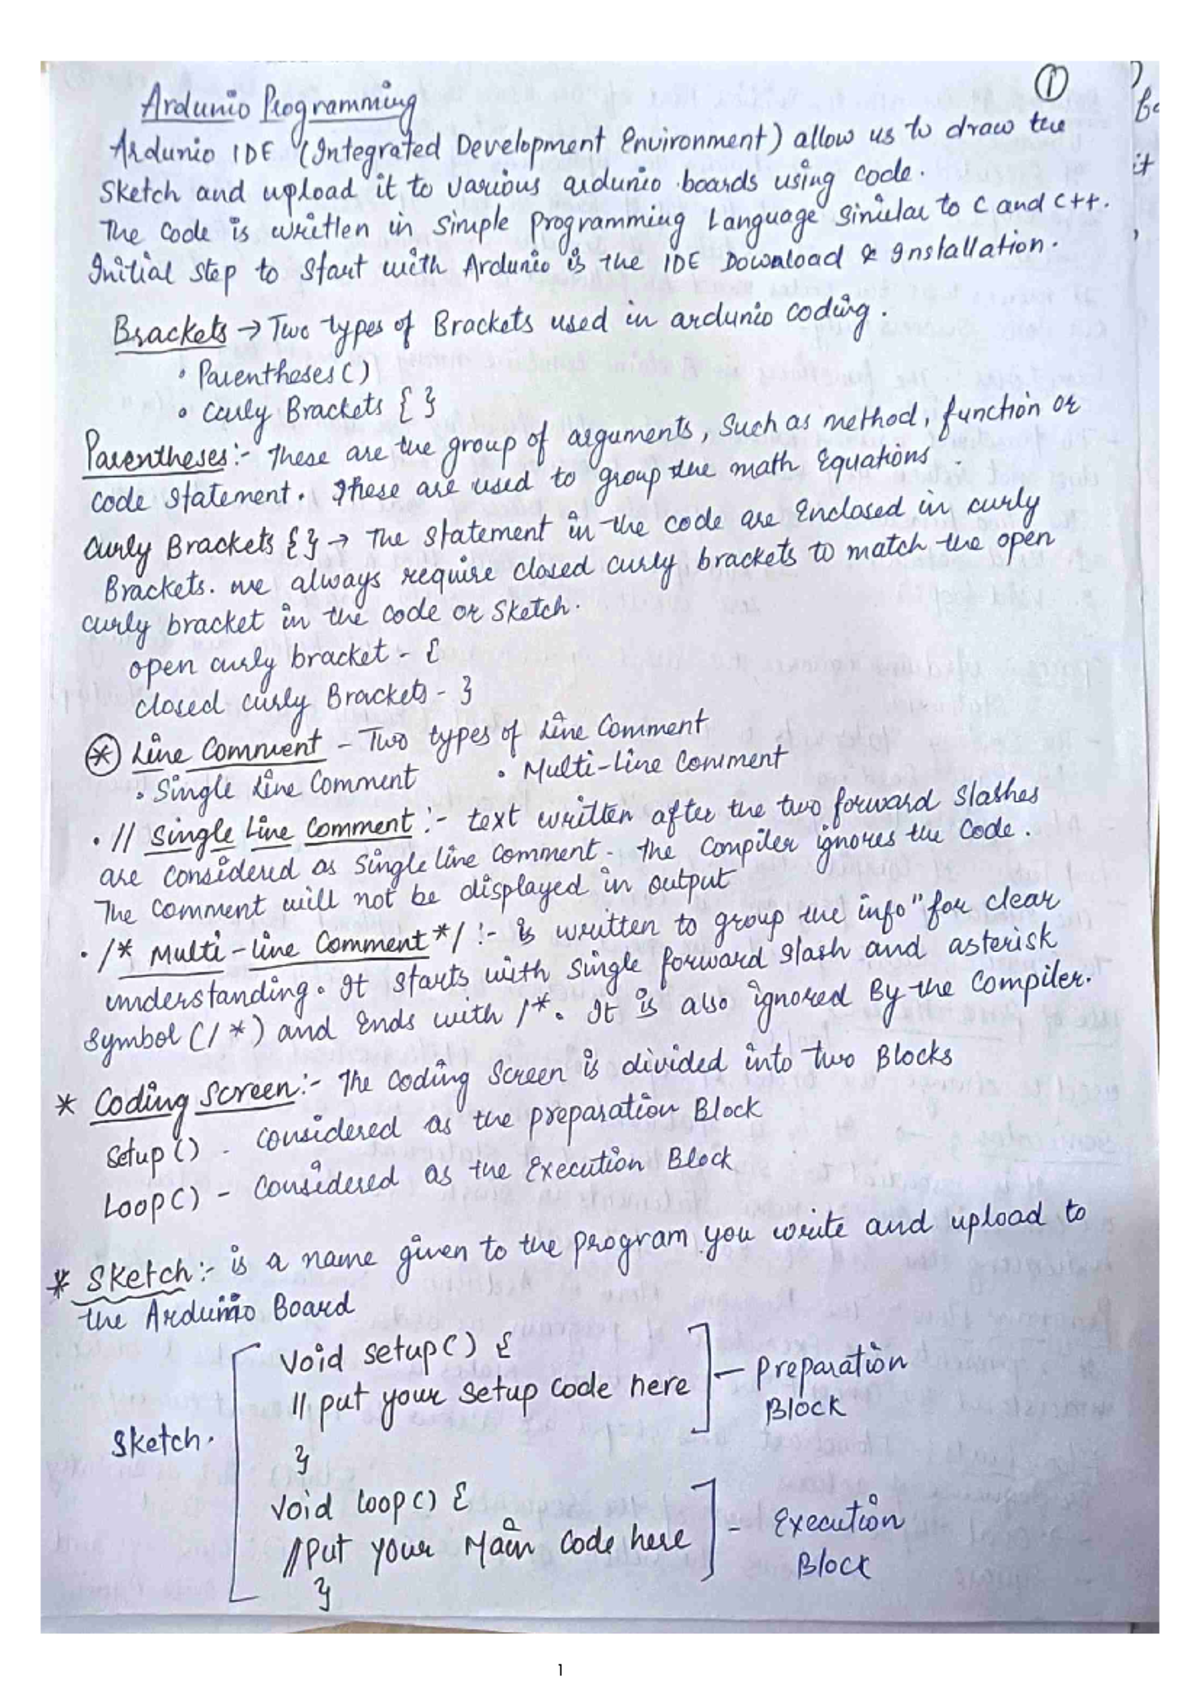 ①
Ardunio Programming
Ardunio IDE (Integrated Development Environment) allow us to draw the
Sketch and upload it to various ardunio boards using code.
The code is written in simple programming Language Similar to C and C++.
Initial Step to Start with Ardunio is the IDE Download & Installation.
Brackets → Two types of Brackets used in ardunio coding.
• Parentheses ( )
• Curly Brackets { }
Parentheses:- These are the group of arguments, Such as method, function or
code statement. These are used to group the math Equations.
Curly Brackets { } → The Statement in the code are Enclosed in curly
Brackets. we always require closed curly brackets to match the open
curly bracket in the code or Sketch.
open curly bracket - {
Closed curly Brackets - }
* Line Comment - Two types of Line Comment
• Single Line Comment • Multi-Line Comment
• // Single Line Comment :- text written after the two forward Slashes
are considered as Single line Comment. The Compiler ignores the Code.
The Comment will not be displayed in output
• /* Multi-line Comment */ :- is written to group the info" for clear
understanding. It starts with Single forward Slash and asterisk
Symbol (/*) and Ends with /*. It is also ignored By the Compiler.
* Coding Screen:- The Coding Screen is divided into two Blocks
Setup () - considered as the preparation Block
Loop () - Considered as the Execution Block
* Sketch:- is a name given to the program you write and upload to
the Arduino Board
Void setup () {
// put your Setup code here
— Preparation
Block
Sketch.
}
Void loop () {
// Put your Main Code here
- Execution
Block
}
it
1